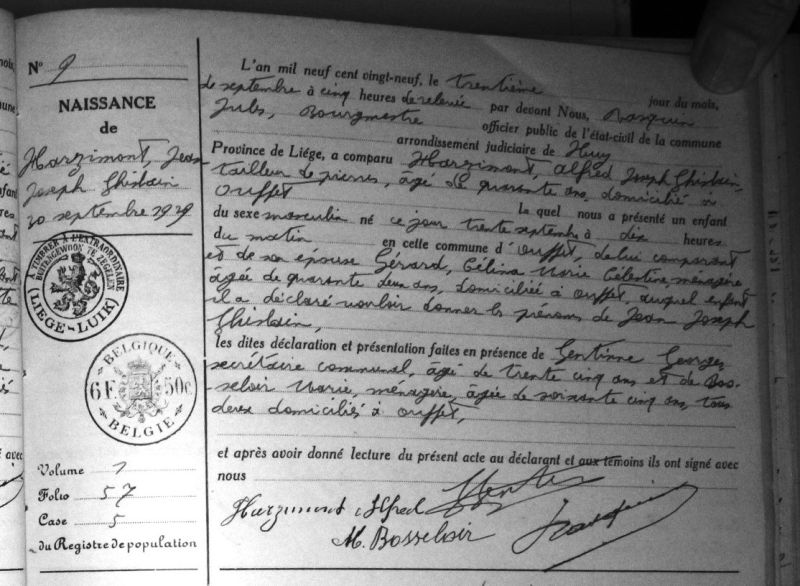 N° 9
NAISSANCE
de
Harzimont, Jean
Joseph Ghislain
30 septembre 1929
TIMBRER A L'EXTRAORDINAIRE
BUITENGEWOON TE ZEGELEN
(LIEGE-LUIK)
BELGIQUE
6 F. 50c
BELGIE
Volume 1
Folio 57
Case 5
du Registre de population
L'an mil neuf cent vingt-neuf, le trentième jour du mois,
de septembre à cinq heures de relevée par devant Nous,
Jules, Bourgmestre officier public de l'état-civil de la commune
arrondissement judiciaire de Huy
Province de Liége, a comparu Harzimont, Alfred Joseph Ghislain,
tailleur de pierres, âgé de quarante ans, domicilié à
Ouffet La quel nous a présenté un enfant
du sexe masculin né ce jour trente septembre à dix heures
du matin en cette commune d'Ouffet, de lui comparant
et de son épouse Gérard, Célina Marie Célestine, ménagère
âgée de quarante deux ans, domiciliée à Ouffet, auquel enfant
il a déclaré vouloir donner les prénoms de Jean Joseph
Ghislain,
les dites déclaration et présentation faites en présence de Gentinne Georges
secrétaire communal, âgé de trente cinq ans et de Bos-
seloir Marie, ménagère, âgée de soixante cinq ans, tous
deux domiciliés à Ouffet,
et après avoir donné lecture du présent acte au déclarant et aux témoins ils ont signé avec
nous
Harzimont Alfred
M. Bosseloir